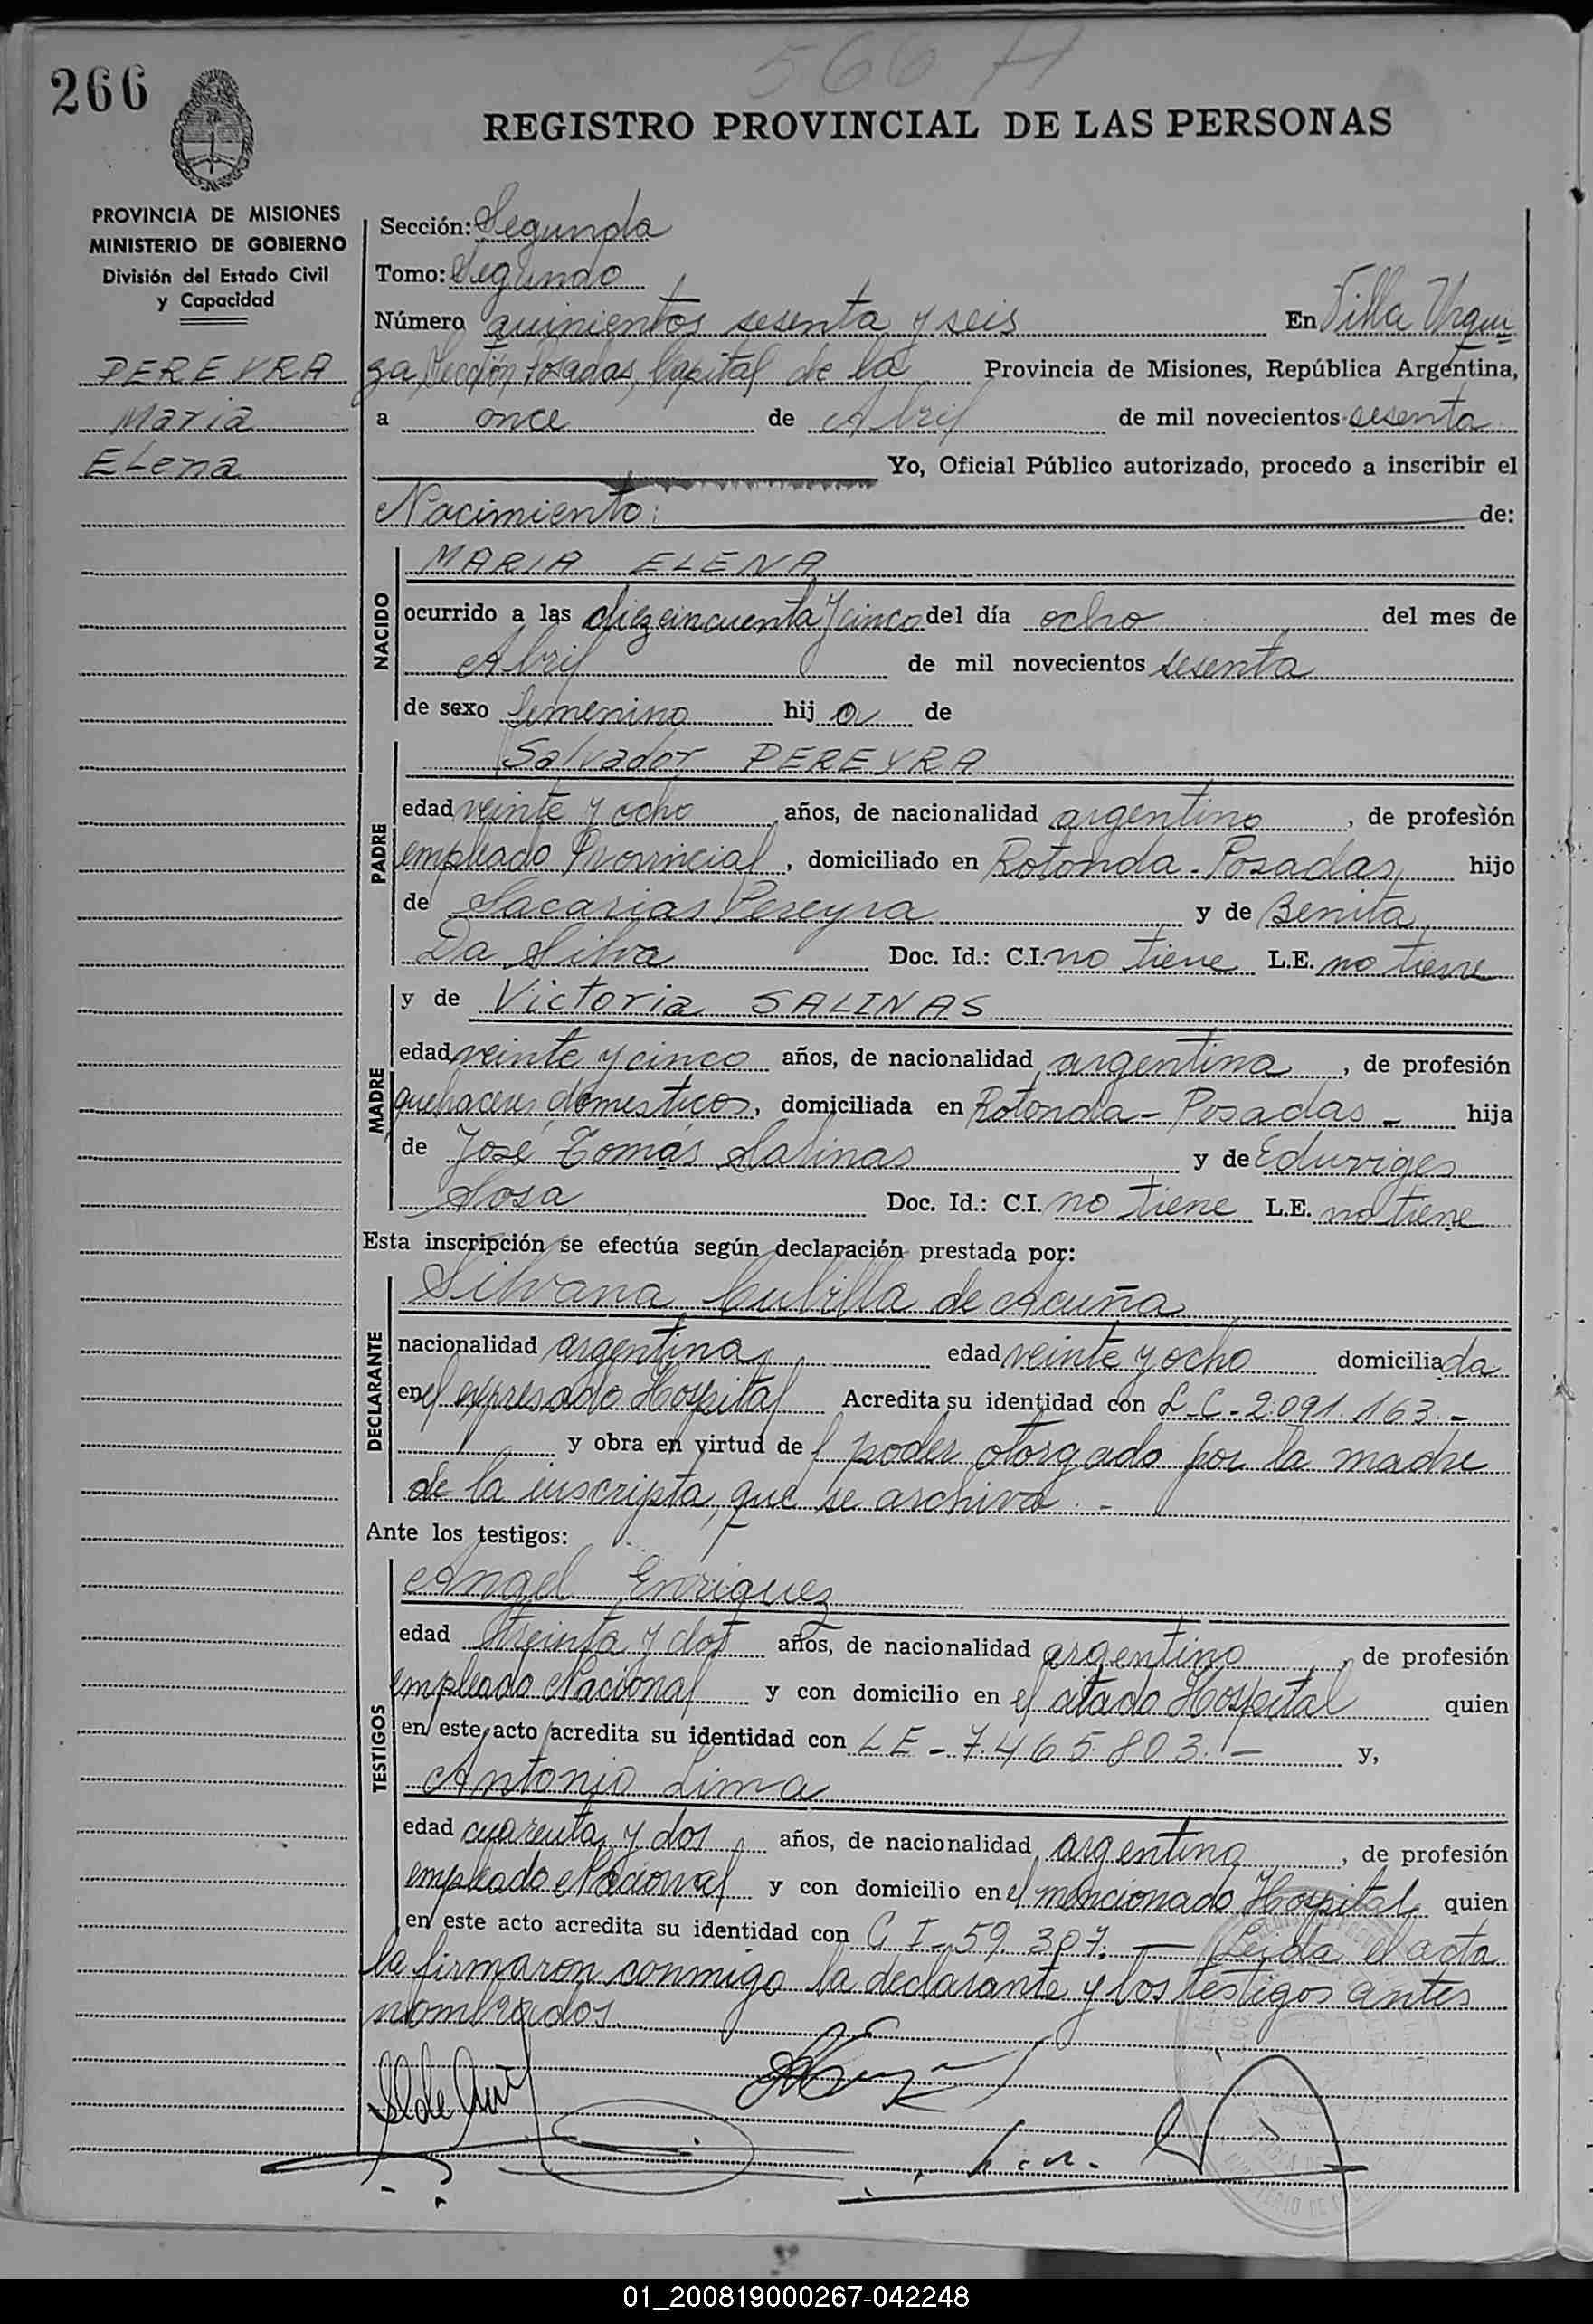 566 A
266
REGISTRO PROVINCIAL DE LAS PERSONAS
PROVINCIA DE MISIONES
MINISTERIO DE GOBIERNO
División del Estado Civil
y Capacidad
PEREYRA
Maria
Elena
Sección: Segunda
Tomo: Segundo
Número quinientos sesenta y seis En Villa Urqui
za, Sección Posadas, Capital de la Provincia de Misiones, República Argentina,
a once de Abril de mil novecientos sesenta
Yo, Oficial Público autorizado, procedo a inscribir el
Nacimiento: de:
NACIDO
MARIA ELENA
ocurrido a las diez cincuenta y cinco del día ocho del mes de
Abril de mil novecientos sesenta
de sexo femenino hij a de
PADRE
Salvador PEREYRA
edad veinte y ocho años, de nacionalidad argentino, de profesión
empleado Provincial, domiciliado en Rotonda - Posadas, hijo
de Sacarias Pereyra y de Benita
Da Silva Doc. Id.: C.I. no tiene L.E. no tiene
MADRE
y de Victoria SALINAS
edad veinte y cinco años, de nacionalidad argentina, de profesión
quehaceres domesticos, domiciliada en Rotonda - Posadas - hija
de José Tomás Salinas y de Eduviges
Sosa Doc. Id.: C.I. no tiene L.E. no tiene
Esta inscripción se efectúa según declaración prestada por:
DECLARANTE
Silvana Cubilla de Acuña
nacionalidad argentina, edad veinte y ocho domiciliada
en el expresado Hospital Acredita su identidad con L-C-2.091.163.-
y obra en virtud de l poder otorgado por la madre
de la inscripta, que se archiva.-
Ante los testigos:
TESTIGOS
Angel Enriquez
edad treinta y dos años, de nacionalidad argentino, de profesión
empleado Nacional y con domicilio en el citado Hospital quien
en este acto acredita su identidad con LE-7.465.803.- y,
Antonio Lima
edad cuarenta y dos años, de nacionalidad argentino, de profesión
empleado Nacional y con domicilio en el mencionado Hospital, quien
en este acto acredita su identidad con C I-59.307.- Leída el acta
la firmaron conmigo la declarante y los testigos antes
nombrados.
01_200819000267-042248